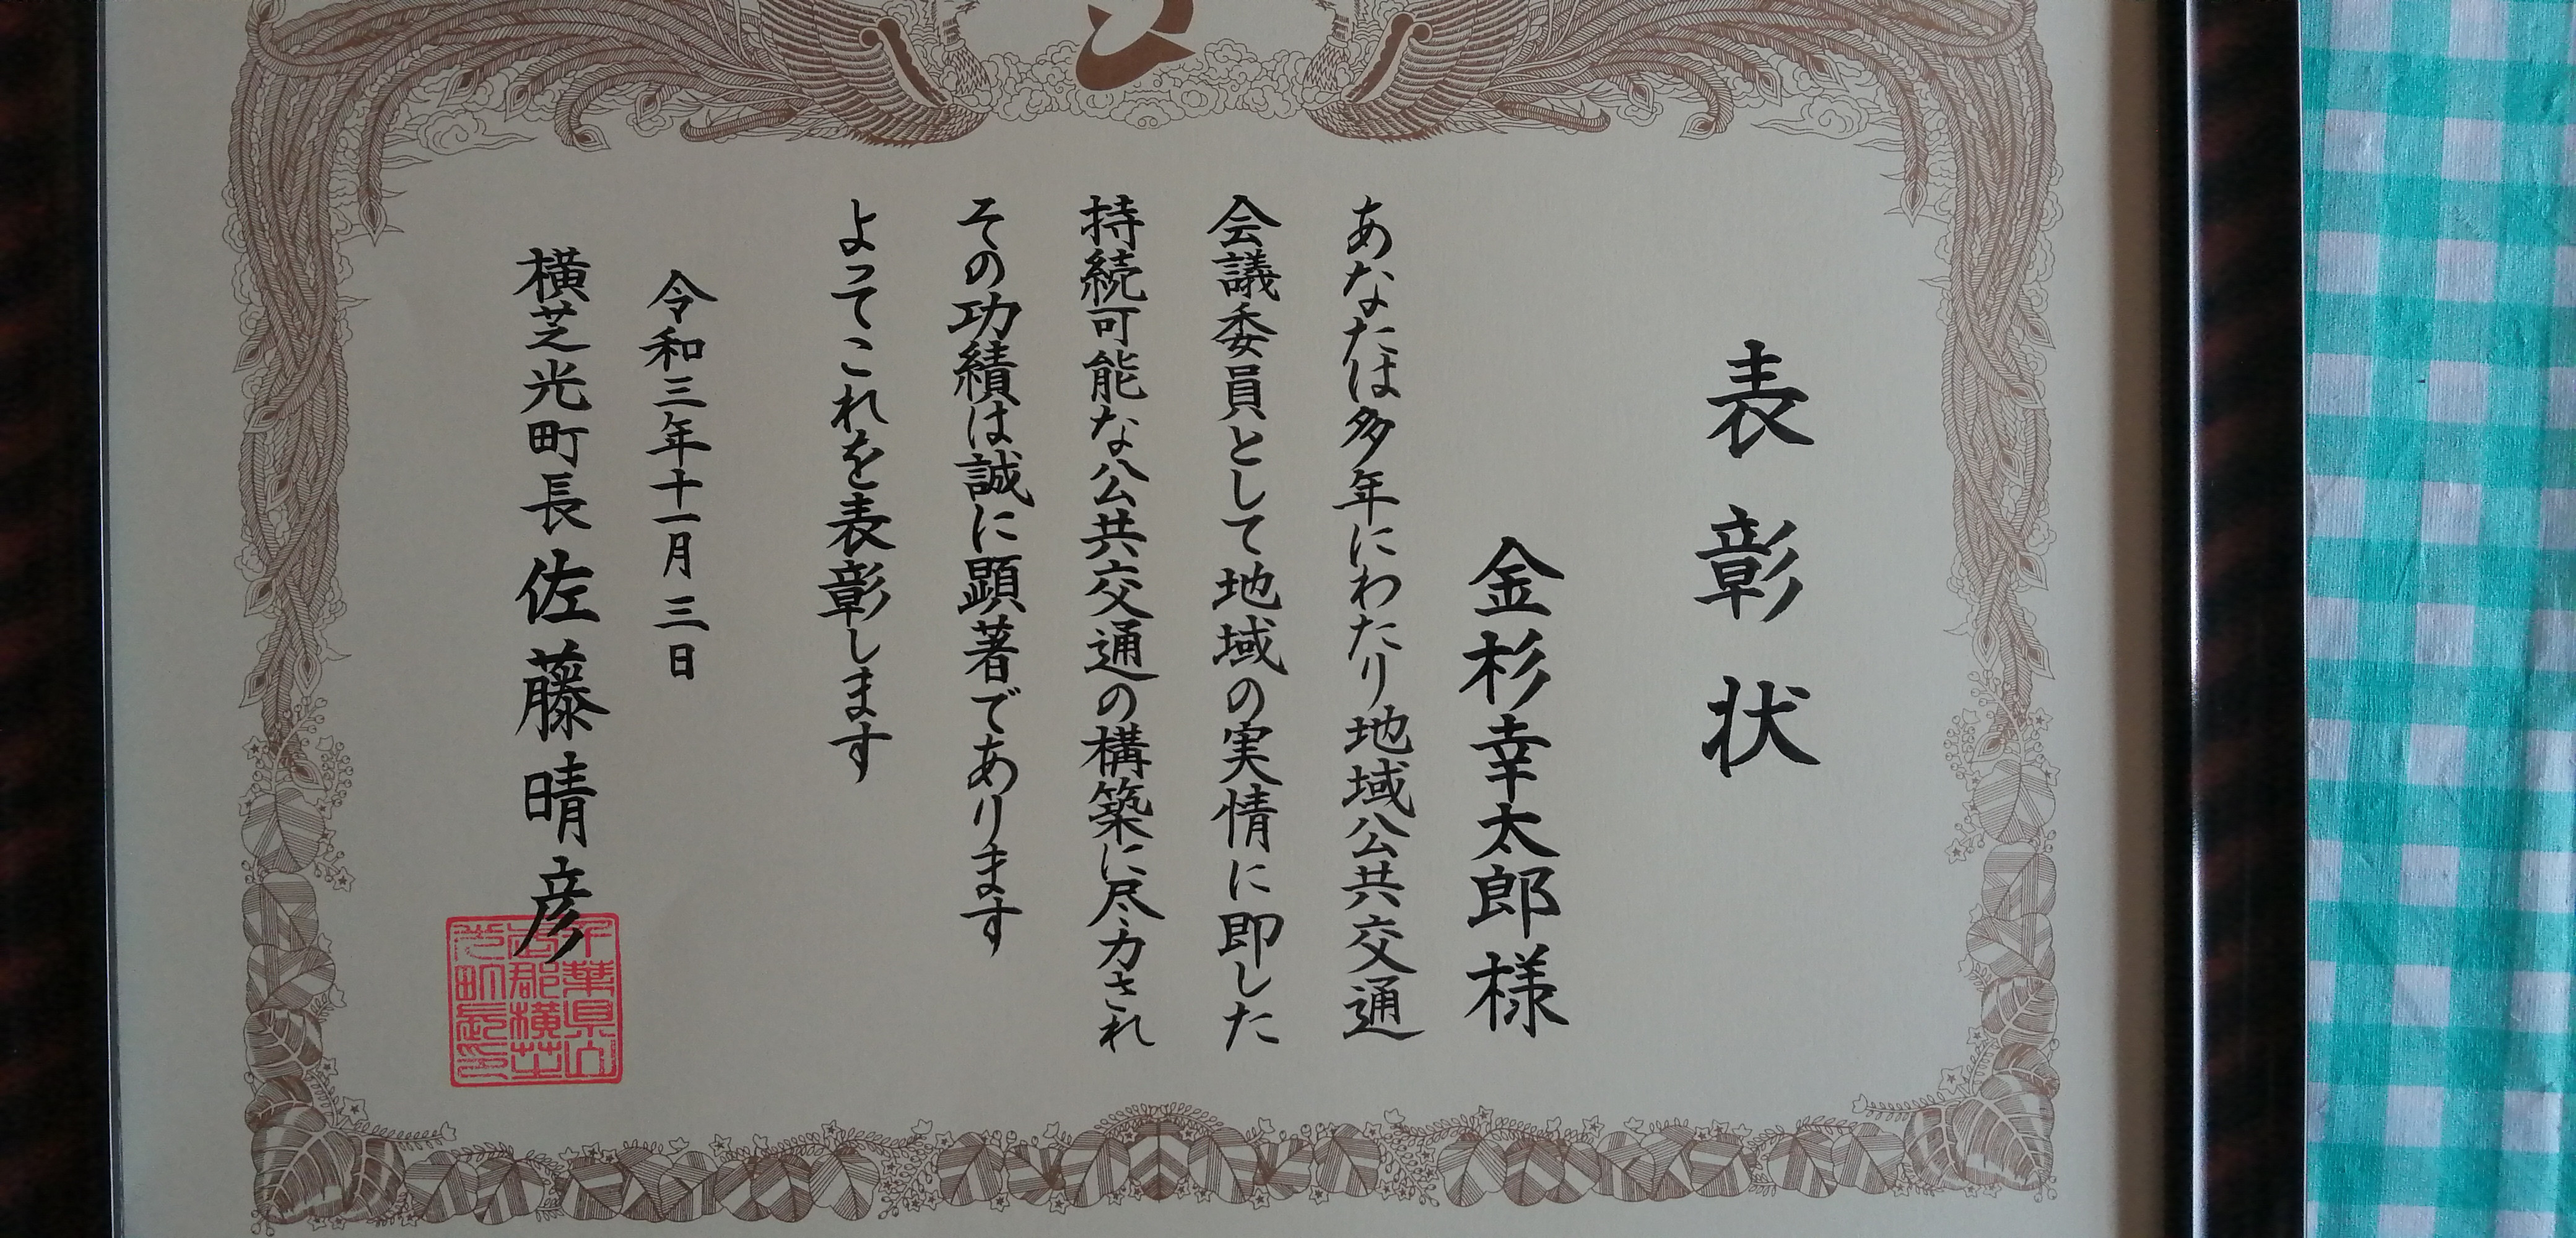 表彰状
金杉幸太郎様
あなたは多年にわたり地域公共交通
会議委員として地域の実情に即した
持続可能な公共交通の構築に尽力され
その功績は誠に顕著であります
よってこれを表彰します
令和三年十一月三日
横芝光町長佐藤晴彦
千葉県山
武郡横芝
光町長印